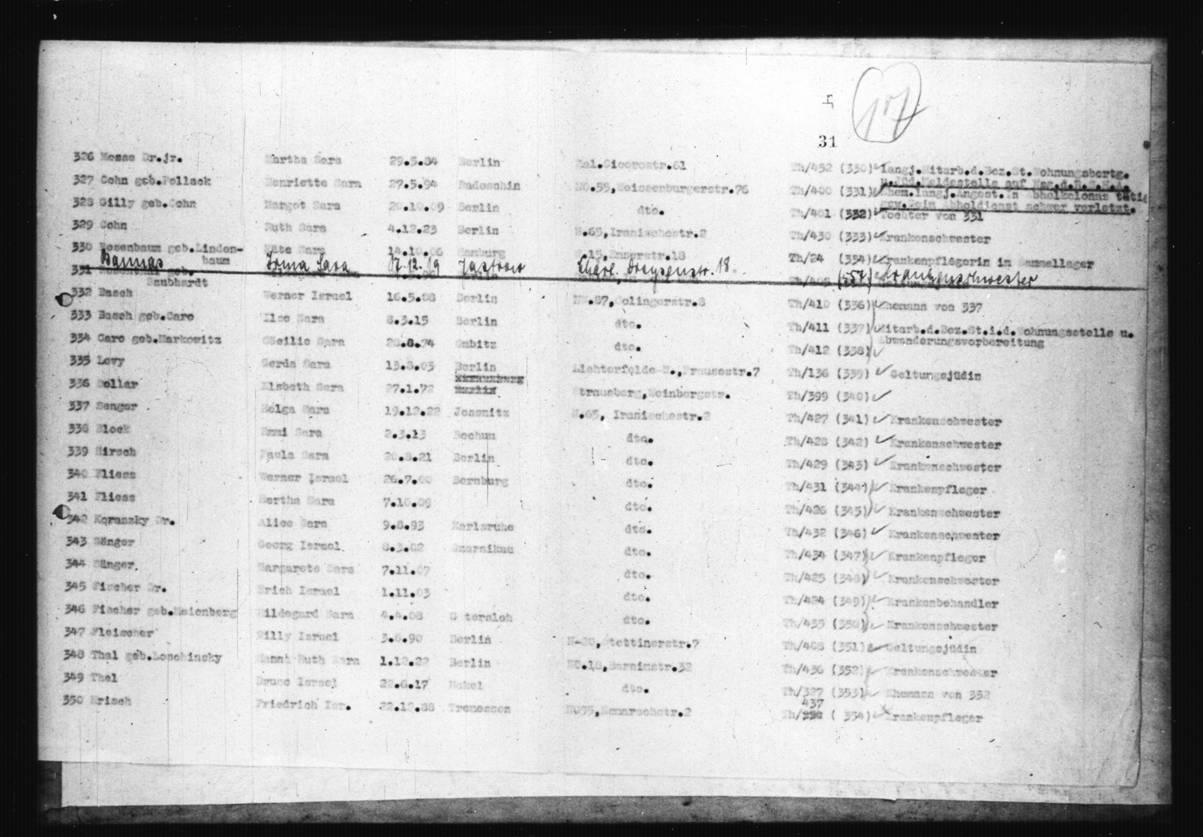 107
31
326 Mosse Dr.jr. Martha Sara 29.5.84 Berlin Hal.Cicerostr.61 Th/452 (330) langj.Mitarb.d.Bez.St.Wohnungsbertg.
327 Cohn geb.Pollack Henriette Sara 27.5.94 Radoschin NO.55,Weissenburgerstr.76 Th/400 (331) Ehem.langj.Angest.in Abholkolonne tätig
gew.Beim Abholdienst schwer verletzt.
328 Gilly geb.Cohn Margot Sara 20.10.09 Berlin dto. Th/401 (332) Tochter von 331
329 Cohn Ruth Sara 4.12.23 Berlin N.65,Iranischestr.2 Th/430 (333) Krankenschwester
330 Rosenbaum geb.Linden-
baum Käte Sara 14.10.06 Hamburg W.15,Emserstr.18 Th/24 (334) Krankenpflegerin im Sammellager
Irma Sara Jastrow 18. Krankenschwester
331 geb.
332 Basch Werner Israel 16.5.08 Berlin NW.87,Solingerstr.8 Th/410 (336) Ehemann von 337
333 Basch geb.Caro Ilse Sara 8.3.15 Berlin dto. Th/411 (337) Mitarb.d.Bez.St.i.d.Wohnungsstelle u.
Abwanderungsvorbereitung
334 Caro geb.Markowitz Cäcilie Sara 28.8.74 dto. Th/412 (338)
335 Levy Gerda Sara 13.8.03 Berlin Lichterfelde-W.,Prausestr.7 Th/136 (339) Geltungsjüdin
336 Dollar Elsbeth Sara 27.1.72 Strausberg,Weinbergstr. Th/399 (340)
337 Senger Helga Sara 19.12.22 Jessnitz N.65, Iranischestr.2 Th/427 (341) Krankenschwester
338 Block Emmi Sara 2.3.13 Bochum dto. Th/428 (342) Krankenschwester
339 Hirsch Paula Sara 20.8.21 Berlin dto. Th/429 (343) Krankenschwester
340 Fliess Werner Israel 26.7.00 Bernburg dto. Th/431 (344) Krankenpfleger
341 Fliess Bertha Sara 7.10.09 dto. Th/426 (345) Krankenschwester
342 Koraszky Dr. Alice Sara 9.8.93 Karlsruhe dto. Th/432 (346) Krankenschwester
343 Sänger Georg Israel 8.3.02 Czarnikau dto. Th/434 (347) Krankenpfleger
344 Sänger. Margarete Sara 7.11.07 dto. Th/425 (348) Krankenschwester
345 Fischer Dr. Erich Israel 1.11.03 dto. Th/424 (349) Krankenbehandler
346 Fischer geb.Meienberg Hildegard Sara 4.4.08 G tersloh dto. Th/435 (350) Krankenschwester
347 Fleischer Willy Israel 3.6.90 Berlin N-20,Stettinerstr.7 Th/408 (351) Geltungsjüdin
348 Thal geb.Loschinsky Hanni Ruth Sara 1.12.22 Berlin NO.18,Barnimstr.32 Th/436 (352) Krankenschwester
349 Thal Bruno Israel 22.6.17 Nakel dto. Th/327 (353) Ehemann von 352
437
350 Krisch Friedrich Isr. 22.12.88 Tremessen NO55, 2 Th/ ( 354) Krankenpfleger